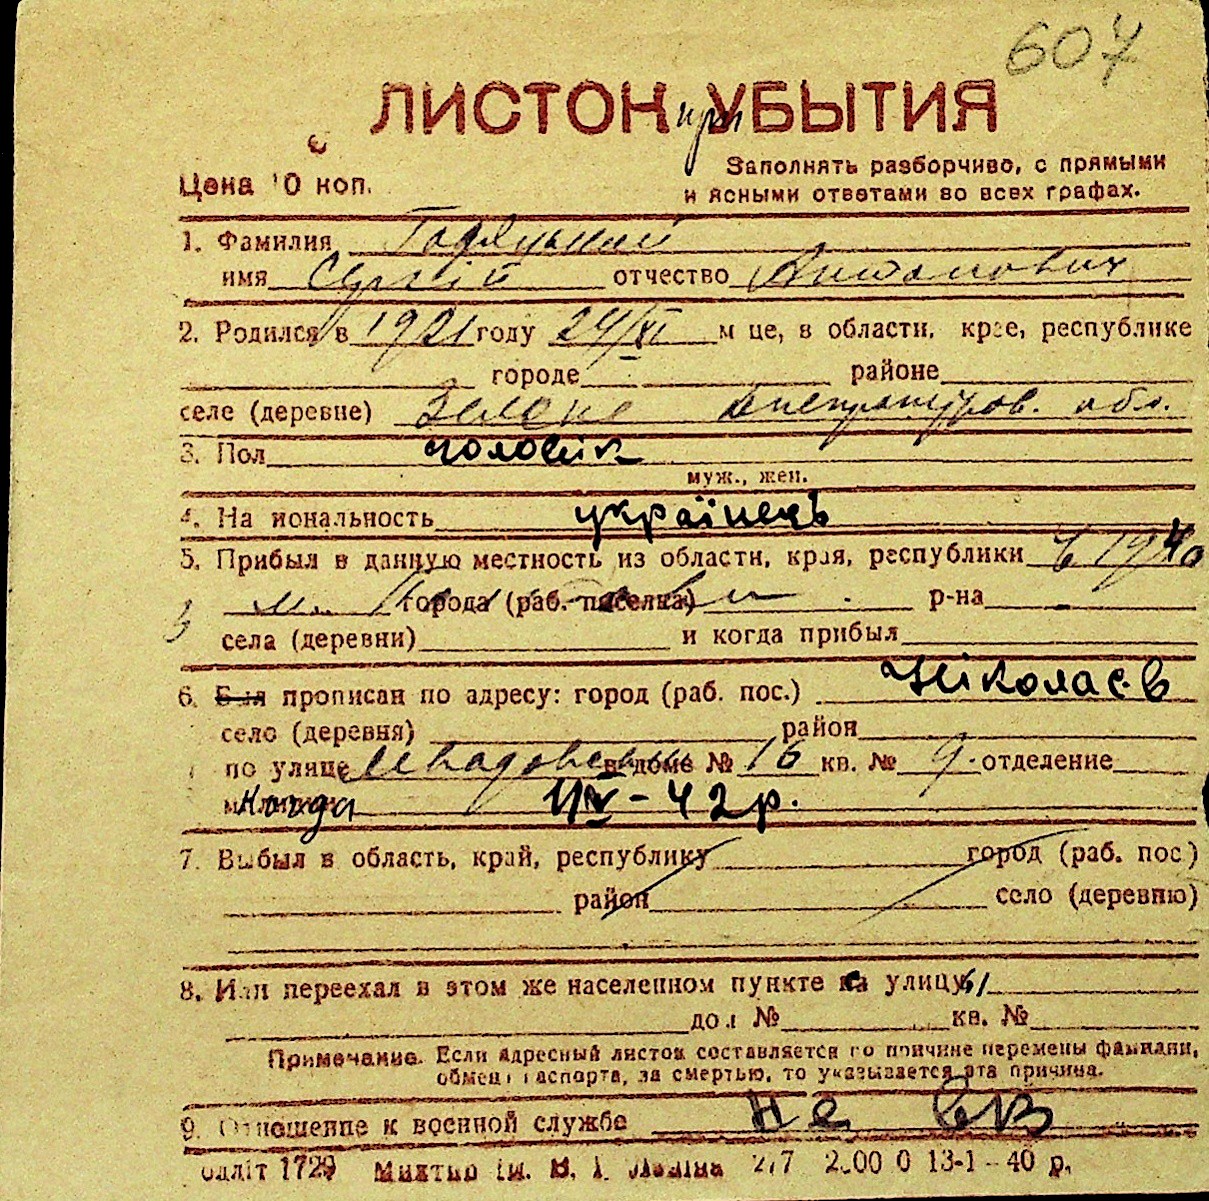 607
ЛИСТОК при УБЫТИЯ
Цена 10 коп.
Заполнять разборчиво, с прямыми
и ясными ответами во всех графах.
1. Фамилия
имя Сергій отчество Антонович
2. Родился в 1921 году 24/XI м це, в области, крае, республике
городе районе
селе (деревне) Зелене Днепропетров. обл.
3. Пол чоловік
муж., жен.
4. На иональность українець
5. Прибыл в данную местность из области, края, республики в 1940
м. города (раб. поселка) р-на
села (деревни) и когда прибыл
6. Был прописан по адресу: город (раб. пос.) Ніколаєв
село (деревня) район
по улице в доме № 16 кв. № 9. отделение
когда IV-42 р.
7. Выбыл в область, край, республику город (раб. пос)
район село (деревню)
8. Или переехал в этом же населенном пункте на улицу
дом № кв. №
Примечание. Если адресный листок составляется по причине перемены фамилии,
обмен паспорта, за смертью, то указывается эта причина.
9. Отношение к военной службе не
одліт 1729 им. В. І. Леніна 277 2000 0 13-1-40 р.